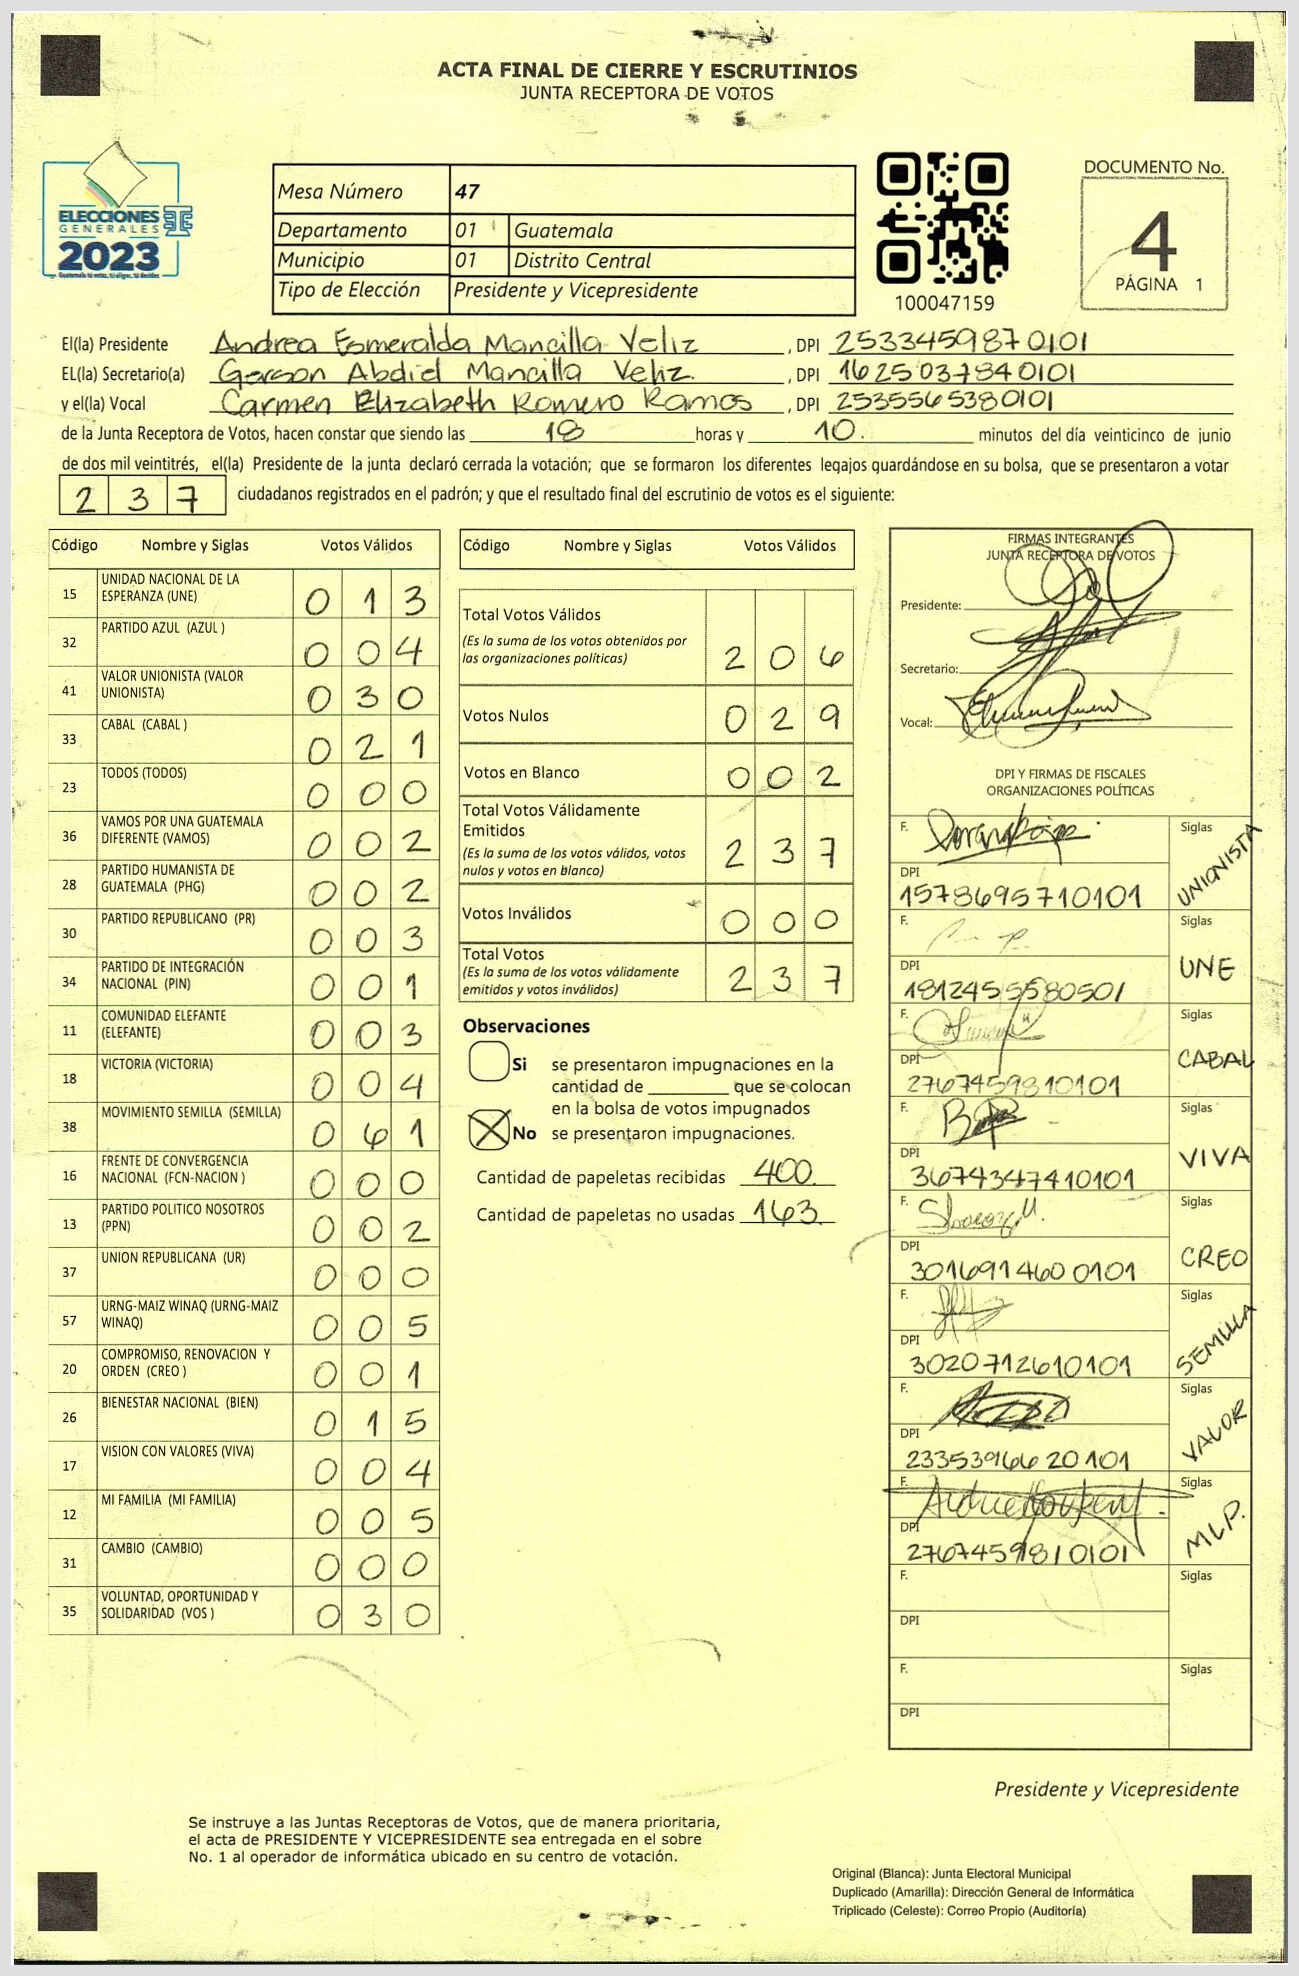 ACTA FINAL DE CIERRE Y ESCRUTINIOS
JUNTA RECEPTORA DE VOTOS
ELECCIONES
GENERALES
2023
Mesa Número 47
Departamento 01 Guatemala
Municipio 01 Distrito Central
Tipo de Elección Presidente y Vicepresidente
100047159
DOCUMENTO No.
4
PÁGINA 1
El(la) Presidente Andrea Esmeralda Mancilla Veliz, DPI 2533459870101
EL(la) Secretario(a) Gerson Abdiel Mancilla Veliz, DPI 1625037840101
y el(la) Vocal Carmen Elizabeth Romero Ramos, DPI 2535565380101
de la Junta Receptora de Votos, hacen constar que siendo las 18 horas y 10. minutos del día veinticinco de junio
de dos mil veintitrés, el(la) Presidente de la junta declaró cerrada la votación; que se formaron los diferentes legajos guardándose en su bolsa, que se presentaron a votar
237 ciudadanos registrados en el padrón; y que el resultado final del escrutinio de votos es el siguiente:
Código Nombre y Siglas Votos Válidos
15 UNIDAD NACIONAL DE LA ESPERANZA (UNE) 013
32 PARTIDO AZUL (AZUL ) 004
41 VALOR UNIONISTA (VALOR UNIONISTA) 030
33 CABAL (CABAL ) 021
23 TODOS (TODOS) 000
36 VAMOS POR UNA GUATEMALA DIFERENTE (VAMOS) 002
28 PARTIDO HUMANISTA DE GUATEMALA (PHG) 002
30 PARTIDO REPUBLICANO (PR) 003
34 PARTIDO DE INTEGRACIÓN NACIONAL (PIN) 001
11 COMUNIDAD ELEFANTE (ELEFANTE) 003
18 VICTORIA (VICTORIA) 004
38 MOVIMIENTO SEMILLA (SEMILLA) 061
16 FRENTE DE CONVERGENCIA NACIONAL (FCN-NACION ) 000
13 PARTIDO POLITICO NOSOTROS (PPN) 002
37 UNION REPUBLICANA (UR) 000
57 URNG-MAIZ WINAQ (URNG-MAIZ WINAQ) 005
20 COMPROMISO, RENOVACION Y ORDEN (CREO ) 001
26 BIENESTAR NACIONAL (BIEN) 015
17 VISION CON VALORES (VIVA) 004
12 MI FAMILIA (MI FAMILIA) 005
31 CAMBIO (CAMBIO) 000
35 VOLUNTAD, OPORTUNIDAD Y SOLIDARIDAD (VOS ) 030
Código Nombre y Siglas Votos Válidos
Total Votos Válidos 206
(Es la suma de los votos obtenidos por
las organizaciones políticas)
Votos Nulos 029
Votos en Blanco 002
Total Votos Válidamente
Emitidos 237
(Es la suma de los votos válidos, votos
nulos y votos en blanco)
Votos Inválidos 000
Total Votos 237
(Es la suma de los votos válidamente
emitidos y votos inválidos)
Observaciones
Si se presentaron impugnaciones en la
cantidad de ________ que se colocan
en la bolsa de votos impugnados
No se presentaron impugnaciones.
Cantidad de papeletas recibidas 400
Cantidad de papeletas no usadas 163
FIRMAS INTEGRANTES
JUNTA RECEPTORA DE VOTOS
Presidente:
Secretario:
Vocal:
DPI Y FIRMAS DE FISCALES
ORGANIZACIONES POLÍTICAS
F. Siglas UNIONISTA
DPI 1578695710101
F. Siglas UNE
DPI 1812455580501
F. Siglas CABAL
DPI 2767459810101
F. Siglas VIVA
DPI 3674347410101
F. Siglas CREO
DPI 3016914600101
F. Siglas SEMILLA
DPI 3020712610101
F. Siglas VALOR
DPI 2335396620101
F. Siglas MLP.
DPI 2767459810101
F. Siglas
DPI
F. Siglas
DPI
Presidente y Vicepresidente
Se instruye a las Juntas Receptoras de Votos, que de manera prioritaria,
el acta de PRESIDENTE Y VICEPRESIDENTE sea entregada en el sobre
No. 1 al operador de informática ubicado en su centro de votación.
Original (Blanca): Junta Electoral Municipal
Duplicado (Amarilla): Dirección General de Informática
Triplicado (Celeste): Correo Propio (Auditoría)